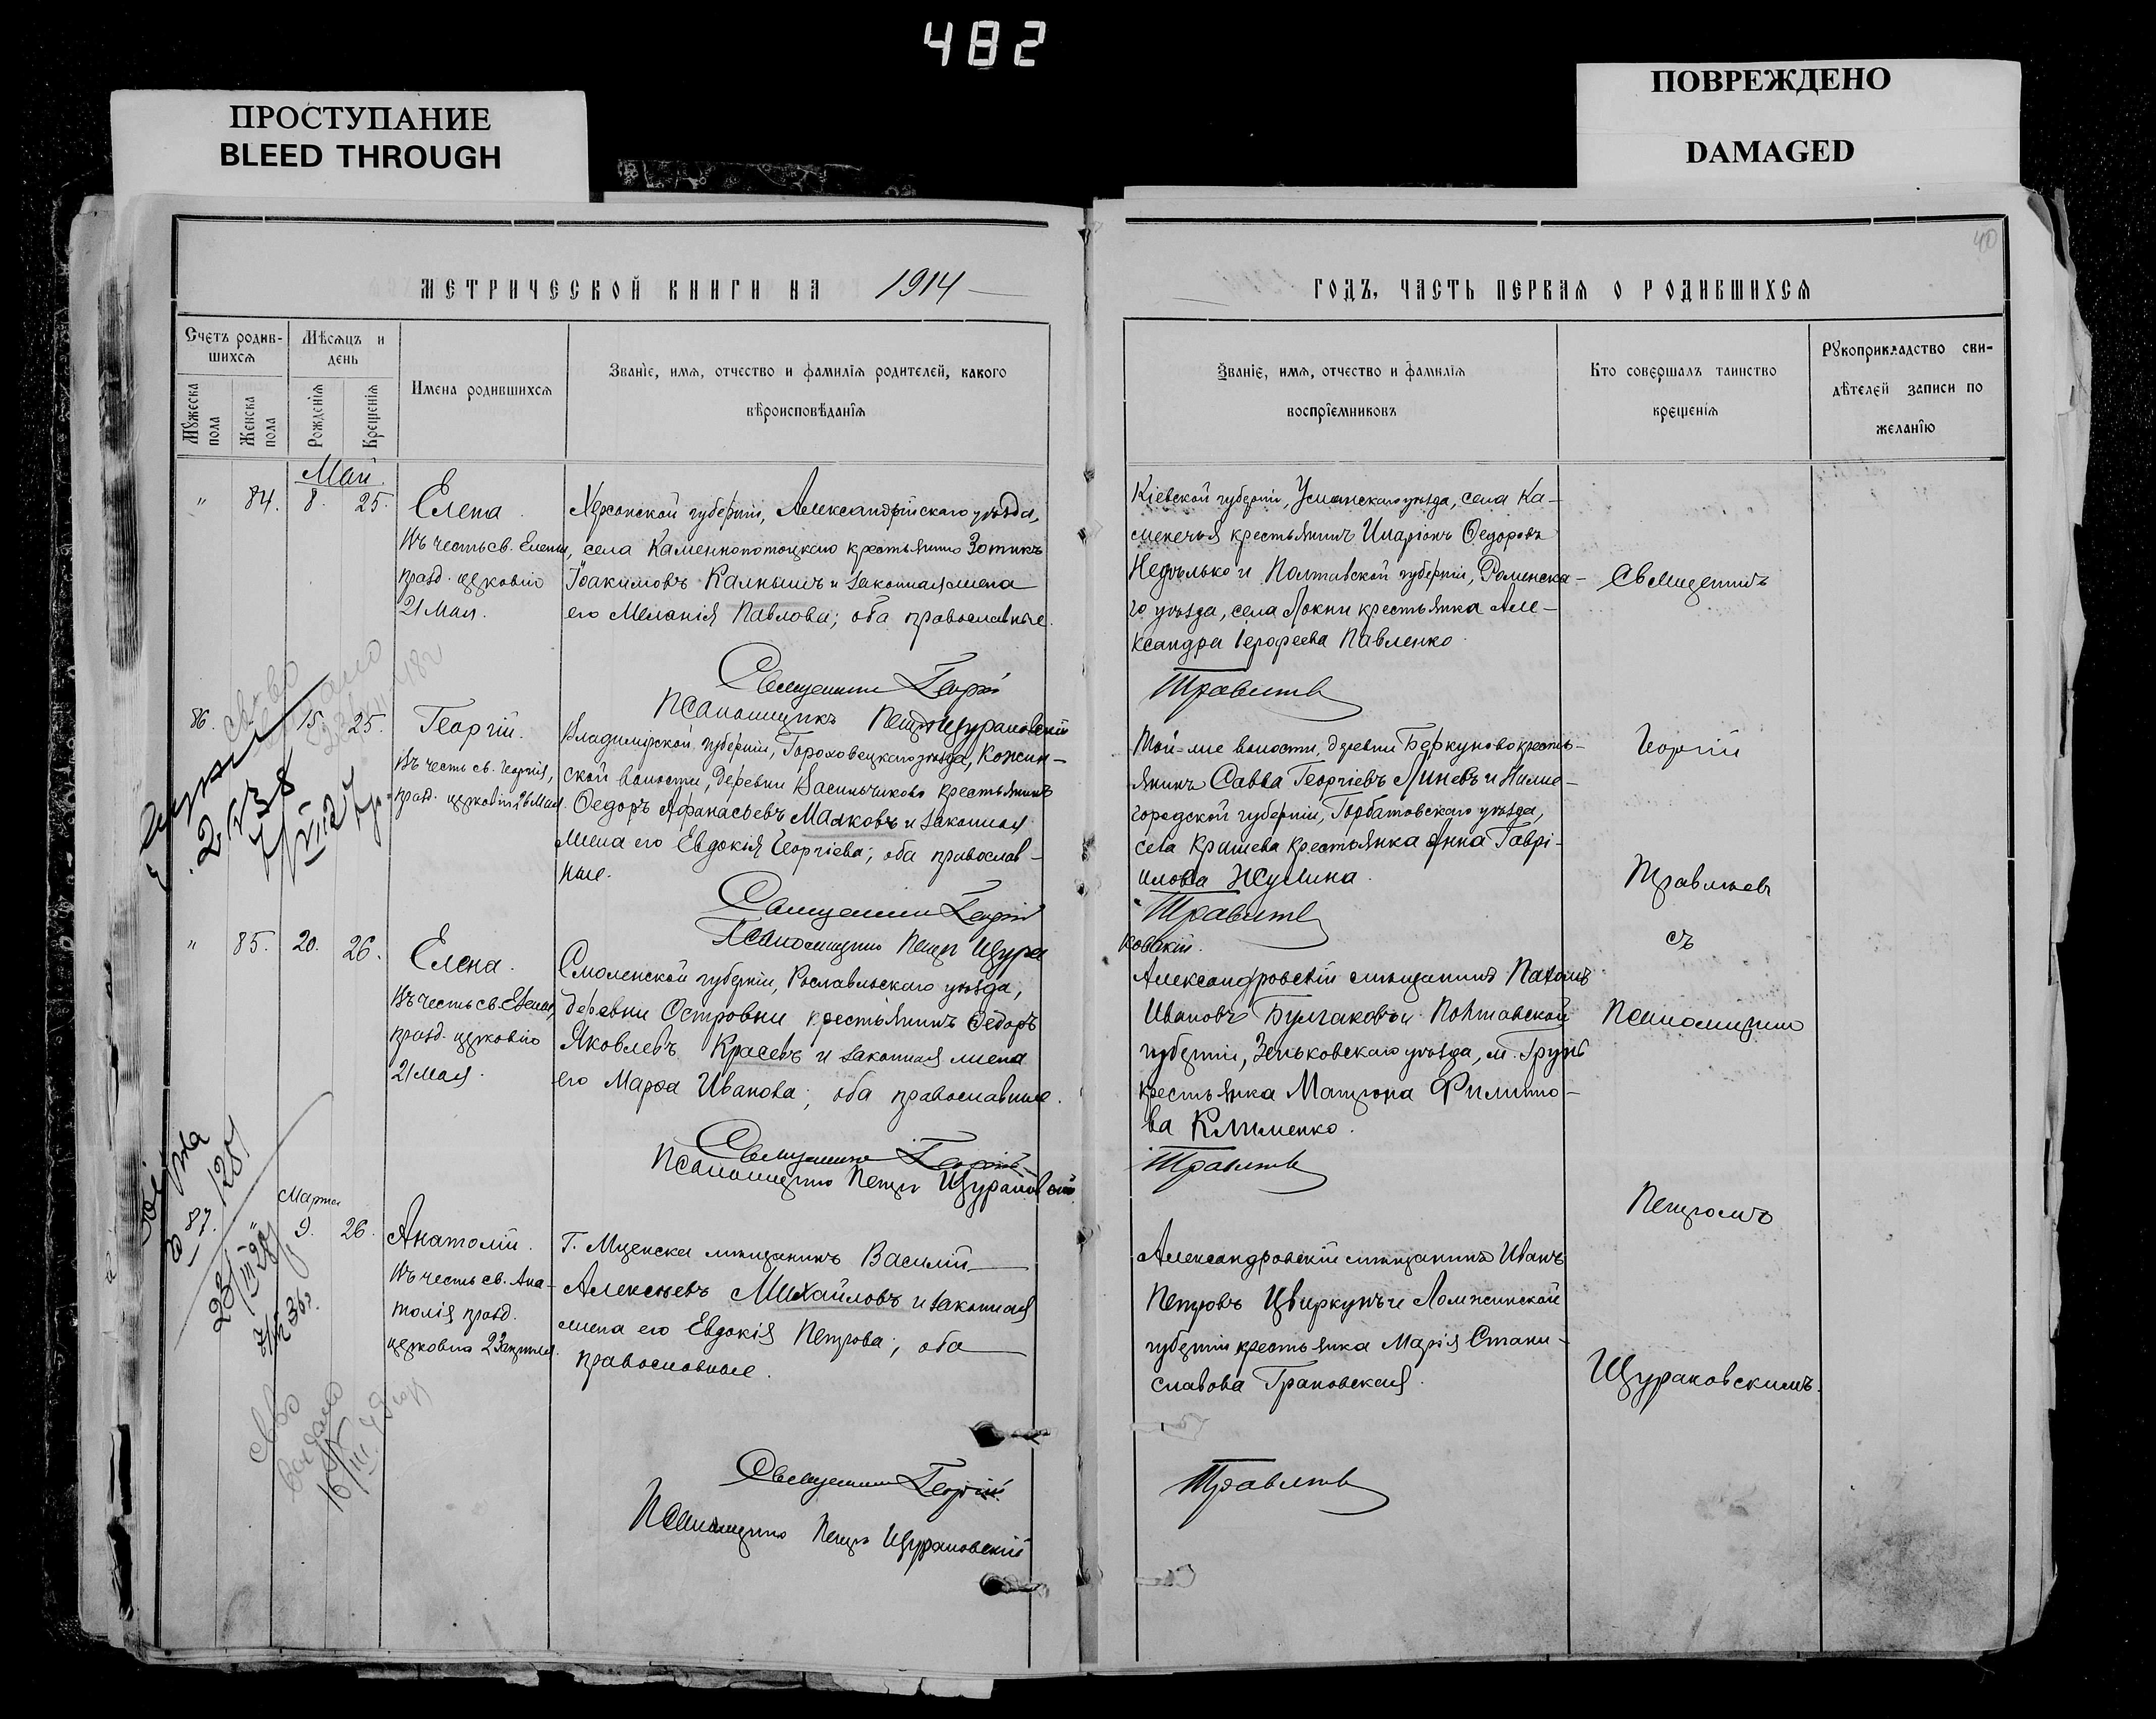 482
ПРОСТУПАНИЕ
BLEED THROUGH
ПОВРЕЖДЕНО
DAMAGED
40
МЕТРИЧЕСКОЙ КНИГИ НА 1914
Счетъ родив-
шихся
Мѣсяцъ и
день
Мужеска
пола
Женска
пола
Рожденія
Крещенія
Имена родившихся
Званіе, имя, отчество и фамилія родителей, какого
вѣроисповѣданія
Май.
" 84. 8. 25.
Елена.
Въ честь св. Елены,
празд. церковію
21 Мая.
Херсонской губерніи, Александрійскаго уѣзда,
села Каменнопотоцкаго крестьянинъ Зотикъ
Іоакимовъ Калнышъ и законная жена
его Меланія Павлова; оба православные.
Священникъ Георгій
Псаломщикъ Петръ Щураковскій
86. 15. 25.
Георгій.
Въ честь св. Георгія,
празд. церковію 26 Мая.
Владимірской губерніи, Гороховецкаго уѣзда, Кожин-
ской волости, деревни Васильчиково крестьянинъ
Федоръ Афанасьевъ Малковъ и законная
жена его Евдокія Георгіева; оба православ-
ные.
Священникъ Георгій
Псаломщикъ Петръ Щура
" 85. 20. 26.
Елена.
Въ честь св. Елены,
празд. церковію
21 Мая.
Смоленской губерніи, Рославльскаго уѣзда,
деревни Островни крестьянинъ Федоръ
Яковлевъ Красевъ и законная жена
его Марфа Иванова; оба православные.
Священникъ Георгій
Псаломщикъ Петръ Щураковскій
Марта
87. " 9. 26.
Анатолій.
Въ честь св. Ана-
толія празд.
церковію 23 апрѣля.
Г. Мценска мѣщанинъ Василій
Алексѣевъ Михайловъ и законная
жена его Евдокія Петрова; оба
православные.
Священникъ Георгій
Псаломщикъ Петръ Щураковскій
ГОДЪ, ЧАСТЬ ПЕРВАЯ О РОДИВШИХСЯ
Званіе, имя, отчество и фамилія
воспріемниковъ
Кто совершалъ таинство
крещенія
Рукоприкладство сви-
дѣтелей записи по
желанію
Кіевской губерніи, Уманскаго уѣзда, села Ка-
менечья крестьянинъ Иларіонъ Федоровъ
и Полтавской губерніи, Роменска-
го уѣзда, села Локни крестьянка Але-
ксандра Іерофеева Павленко.
Травлевъ
Той-же волости, деревни Беркуново кресть-
янинъ Савва Георгіевъ Линевъ и Ниже-
городской губерніи, Горбатовскаго уѣзда,
села Кришева крестьянка Анна Гаврі-
илова Жулина.
Травлевъ
ковскій.
Александровскій мѣщанинъ Пахомъ
Ивановъ Булгаковъ и Полтавской
губерніи, Зеньковскаго уѣзда, м. Грунь
крестьянка Матрона Филиппо-
ва Клименко.
Травлевъ
Александровскій мѣщанинъ Иванъ
Петровъ Цвиркунъ и Ломжинской
губерніи крестьянка Марія Стани-
славова Грановская.
Травлевъ
Священникъ
Георгій
Травлевъ
съ
Псаломщикомъ
Петромъ
Щураковскимъ.